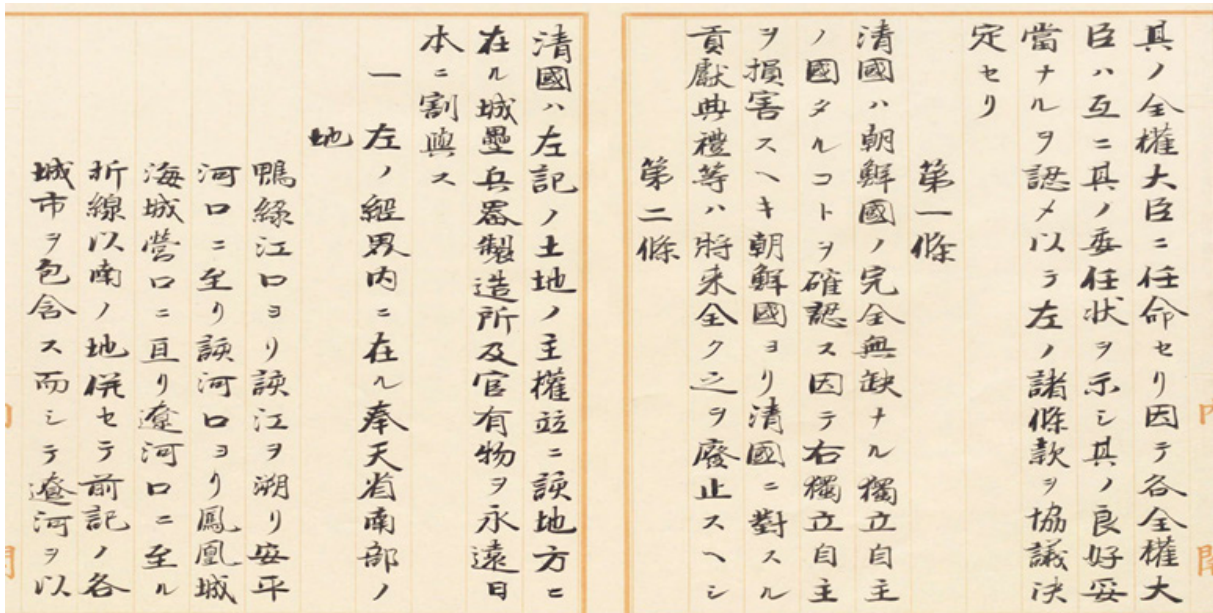 其ノ全權大臣ニ任命セリ因テ各全權大
臣ハ互ニ其ノ委任状ヲ示シ其ノ良好妥
當ナルヲ認メ以テ左ノ諸條款ヲ協議决
定セリ
第一條
清國ハ朝鮮國ノ完全無缺ナル獨立自主
ノ國タルコトヲ確認ス因テ右獨立自主
ヲ損害スヘキ朝鮮國ヨリ清國ニ對スル
貢獻典禮等ハ將来全ク之ヲ廢止スヘシ
第二條
清國ハ左記ノ土地ノ主權竝ニ該地方ニ
在ル城壘兵器製造所及官有物ヲ永遠日
本ニ割與ス
一左ノ經界内ニ在ル奉天省南部ノ
地
鴨緑江口ヨリ該江ヲ溯リ安平
河口ニ至リ該河口ヨリ鳳凰城
海城營口ニ亘リ遼河口ニ至ル
折線以南ノ地併セテ前記ノ各
城市ヲ包含ス而シテ遼河ヲ以
内
閣